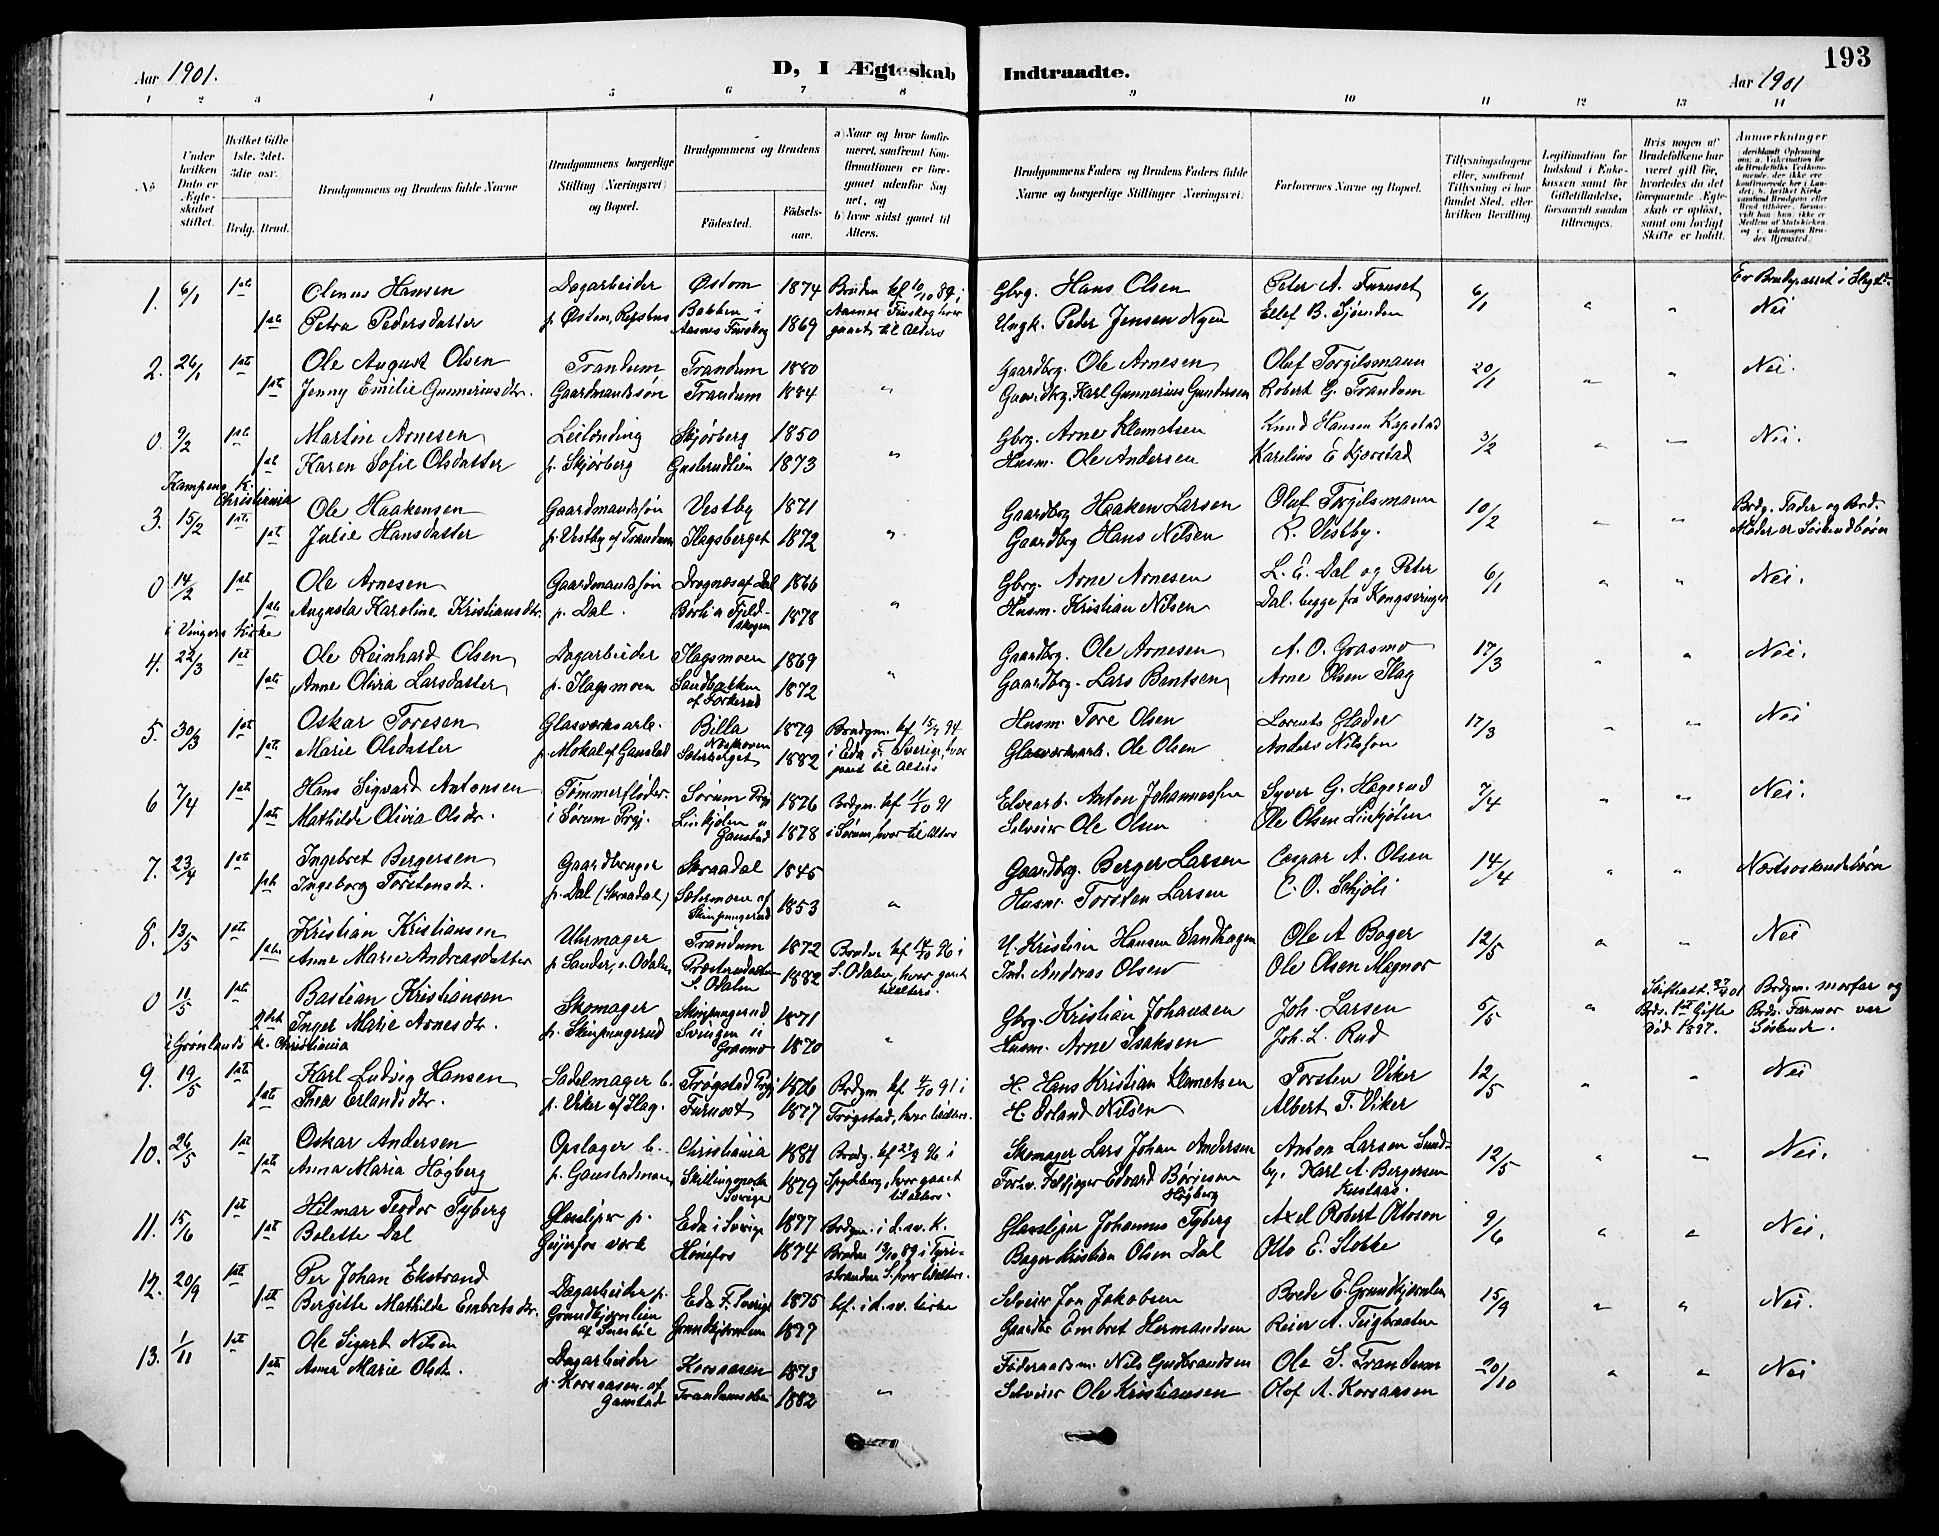 193
Aar 1901.
D, I Ægteskab Indtraadte.
Aar 1901
1 2 3 4 5 6 7 8 9 10 11 12 13 14
No
Under hvilken Dato er Ægteskabet stiftet.
Hvilket Gifte 1ste, 2det, 3die osv.
Brdg. Brud.
Brudgommens og Brudens fulde Navne
Brudgommens borgerlige Stilling (Næringsvei) og Bopæl.
Brudgommens og Brudens
Födested. Födselsaar.
a) Naar og hvor konfirmeret, saafremt Konfirmationen er foregaaet udenfor Sognet, og
b) hvor sidst gaaet til Alters.
Brudgommens Faders og Brudens Faders fulde Navne og borgerlige Stillinger (Næringsvei).
Forlovernes Navne og Bopæl.
Tillysningsdagene eller, saafremt Tillysning ei har fundet Sted, efter hvilken Bevilling.
Legitimation for Indskud i Enkekassen samt for Giftetilladelse, forsaavidt saadan tiltrænges.
Hvis nogen af Brudefolkene har været gift før, hvorledes da det foregaaende Ægteskab er opløst, samt om lovligt Skifte er holdt.
Anmærkninger
1. 6/1 1ste Olenus Hansen Dagarbeider Østom 1874 Bruden kf 10/10 89 i Gbrg. Hans Olsen Peter A. Furuset 6/1 " "
1ste Petra Pedersdatter p. Østom, Bakken i Aasnes Finskog 1869 Aasnes Finskog hvor gaaet til Alters Ungk. Peder Jensen Nyen Ellef B. Sjøenden Nei
2. 26/1 1ste Ole August Olsen Trandum Trandum 1880 Gaardbrg. Ole Arnesen Olaf Torgilsmann 20/1 " " Nei.
1ste Jenny Emilie Gunneriusdtr. Gaardmandssøn Trandum 1884 " Karl Gunnerius Gundersen Robert G. Trandum
0 9/2 1ste Martin Arnesen Leilænding Skjørberg 1850 Gbrg. Arne Klemetsen Knud Hansen Kapstad 3/2 " " Nei.
1ste Karen Sofie Olsdatter p. Skjørberg 1873 " Husm. Ole Andersen Karelius E Kjorstad
Kampens K. Christiania
3. 15/2 1ste Ole Haakensen Gaardmandssøn Vestby 1871 Gaardbrg Haaken Larsen Olaf Torgilsmann 10/2 " " Brdg. Fader og Brd.
1ste Julie Hansdatter p. Vestby af Trandum Flagsberget 1872 " Gaardbrg Hans Nilsen R. Vestby. Moder er Söskendbörn
0 14/2 1ste Ole Arnesen Gaardmandssøn Drognes af Dal 1866 Gbrg. Arne Arnesen L. E. Dal og Peter 6/1 " " Nei.
1ste Augusta Karoline Kristiansdtr. p. Dal. 1878 " Husm. Kristian Nilsen Dal. begge fra Kongsvinger
i Vingers Kirke
4. 22/3 1ste Ole Reinhard Olsen Dagarbeider Flagsmoen 1869 Gaardbrg. Ole Arnesen A. O. Grasmo 17/3 " " Nei.
1ste Anne Olivia Larsdatter p. Flagsmoen Sandbakken af Torkerud 1872 " Gaardbrg. Lars Bentsen Arne Olsen Flag
5. 30/3 1ste Oskar Toresen Glasværksarb. Billa 1879 Brudgm. kf. 15/7 94 Husm. Tore Olsen Lorents Glader 17/3 " " Nei
1ste Marie Olsdatter p. Mokal af Gaustad 1882 i Eda i Sverige, hvor gaaet til Alters Glasværksarb. Ole Olsen Anders Nilsson
6 7/4 1ste Hans Sigvard Antonsen Tömmerfløder Sørum Prgj 1876 Brdgm. kf 11/10 91 Elvearb. Anton Johannessen Syver G. Hagerud 7/4 " " Nei.
1ste Mathilde Olivia Olsdr. i Sørum Prgj. Linkjölen u Gaustad 1878 i Sørum, hvor til Alters Selveier Ole Olsen Ole Olsen Linkjölen
7. 23/4 1ste Ingebret Bergersen Gaardbruger Skraadal 1845 Gaardbrg. Berger Larsen Caspar A. Olsen 14/4 " " Næstsøskendebörn
1ste Ingeborg Torstensdr. p. Dal (Skraadal) Sætermoen af Skinpungerud 1853 " Husm. Torsten Larsen C. O. Schjöli
8. 13/5 1ste Kristian Kristiansen Uhrmager Trandum 1872 Bruden kf 14/10 96 i U. Kristian Hansen Sandhagen Ole A Bager 12/5 " " Nei
1ste Anne Marie Andreasdatter p. Sander, s. Odalen S. Odalen 1882 S. Odalen, hvor gaaet til alters. Ind. Andreas Olsen Ole Olsen Magnor
0 11/5 1ste Bastian Kristiansen Skomager Skinpungerud 1871 Gbrg. Kristian Johansen Joh. Larsen 5/5 " Brds. 1ste Gifte Död 1897. Brdgm. morfar og
2det Inger Marie Arnesdr. p. Skinpungerud Svingen i Grasmo 1870 " Husm. Arne Isaksen Joh. L. Rud Brds. Farmor var Söskende.
i Grønlands k. Christiania
9. 19/5 1ste Karl Ludvig Hansen Sadelmager b. Trøgstad Prgj 1876 Brdgm kf 4/10 91 i H. Hans Kristian Klemetsen Torsten Viker 12/5 " " Nei
1ste Thea Erlandsdr. p. Viker af Flag. Furuset 1877 Trögstad, hvor tilalters. H. Erland Nilsen Albert T. Viker
10. 26/5 1ste Oskar Andersen Opslager b. Christiania 1881 Brdg. kf 27/9 96 i Skomager Lars Johan Andersen Anton Larsen Sund- 12/5 " " Nei.
1ste Anna Maria Högberg p. Gaustadmoen Skillingmark Sverige 1879 Spydeberg, hvor gaaet til alters. Edvard Börjeson Högberg by, Karl A. Bergersen
11. 15/6 1ste Hilmar Teodor Tyberg Glassliper p. Eda i Sverige 1877 Brdgm. i d. sv. K. Glassliper Johannes Tyberg Axel Robert Ottoson 9/6 " " Nei.
1ste Bolette Dal Geijerfos værk Hønefos 1874 Bruden 13/10 89 i Tyristranden S. hvor tilalters. Bager Kristian Olsen Dal Otto E. Stokke
12. 20/9 1ste Per Johan Ekstrand Dagarbeider p. Eda F. Sverige 1875 kf. i d. sv. kirke Selveier Jon Jakobsen Brede E. Grundtjernlien 15/9 " " Nei.
1ste Bergitte Mathilde Embretsdr. Grundtjernlien Grundtjernlien 1877 Gaardbr Embret Hermandsen Reier A. Teigbraaten
13. 1/11 1ste Ole Sigurd Nilsen Dagarbeider Korsaasen 1873 Föderaadsm. Nils Gudbrandsen Ole S. Trandum 20/10 " " Nei
1ste Anna Marie Olsdr. p. Korsaasen af Gaustad 1882 " Selveier Ole Kristiansen Olof A. Korsaasen